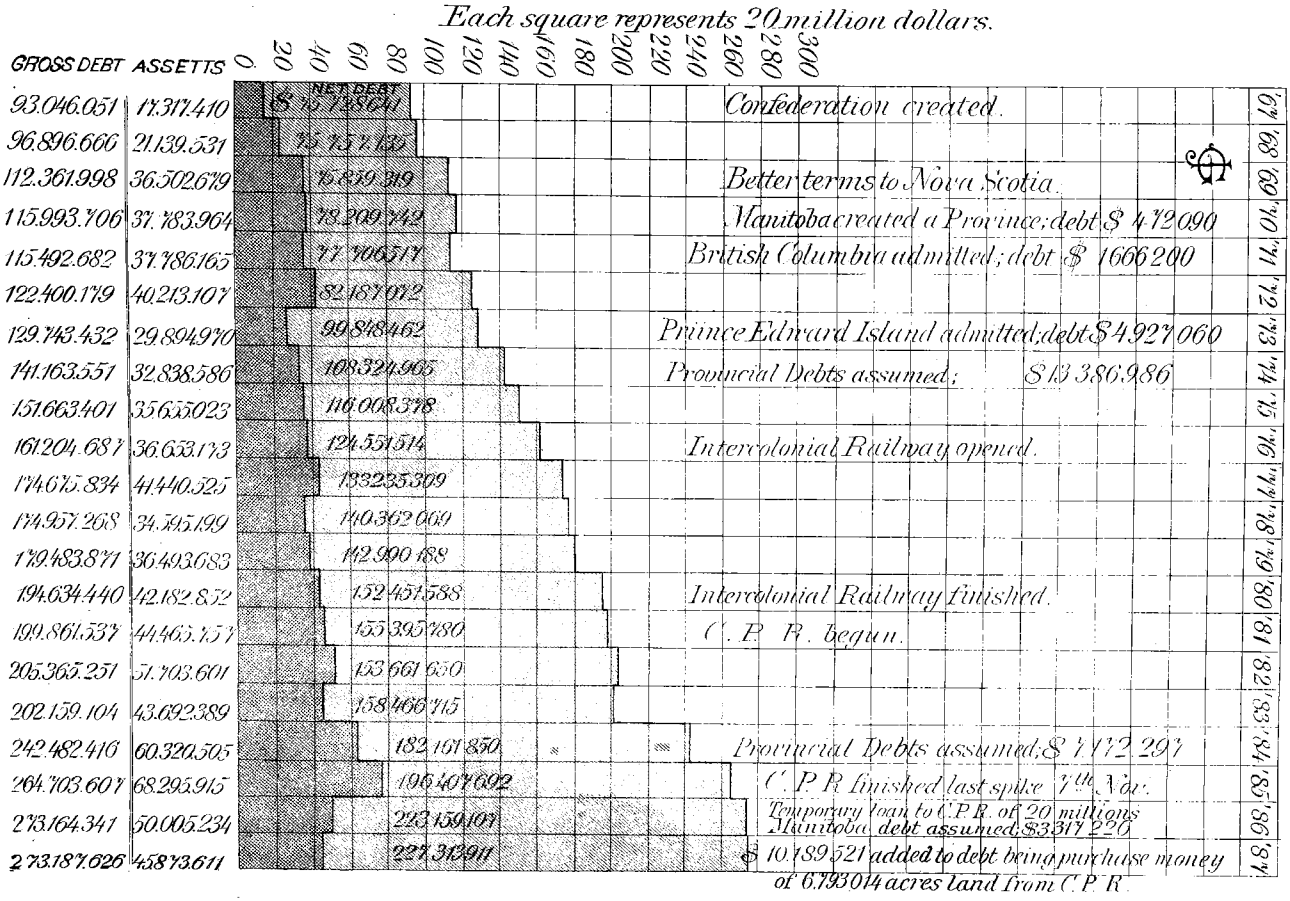 Each square represents 20 million dollars.
GROSS DEBT ASSETTS 0. 20 40 60 80 100 120 140 160 180 200 220 240 260 280 300
NET DEBT
93.046.051 17.317.410 $ 75.728641 Confederation created. '67
96.896.666 21.139.531 75 757.135 '68
112.361.998 36.502.679 75.859.319 Better terms to Nova Scotia. '69
115.993.706 37.783.964 78.209.742 Manitoba created a Province; debt $ 472090 '70
115.492.682 37.786.165 77 706517 British Columbia admitted; debt $ 1666200 '71
122.400.179 40.213.107 82.187072 '72
129.743.432 29.894970 99.848.462 Prince Edward Island admitted; debt $4.927060 '73
141.163.551 32.838.586 108.324.965 Provincial Debts assumed; $13 386.986 '74
151.663.401 35.655.023 116.008.378 '75
161.204.687 36.653.173 124.551.514 Intercolonial Railway opened. '76
174.675.834 41.440.525 133235.309 '77
174.957.268 34.595.199 140.362 069 '78
179.483.871 36.493.683 142.990 188 '79
194.634.440 42.182.852 152 451.588 Intercolonial Railway finished. '80
199.861.537 44.465.757 155 395.780 C. P. R. begun. '81
205.365.251 51.703.601 153 661 650 '82
202.159.104 43.692.389 158 466 715 '83
242.482.416 60.320.505 182 161 850 Provincial Debts assumed; $ 7.172.297 '84
264.703.607 68.295.915 196 407 692 C. P. R finished last spike 7th Nov. '85
Temporary loan to C.P.R. of 20 millions
273.164.341 50.005.234 223 159.107 Manitoba debt assumed; $3317 220 '86
273.187.626 45873.611 227.313911 $ 10.189.521 added to debt being purchase money '87
of 6.793014 acres land from C. P. R.